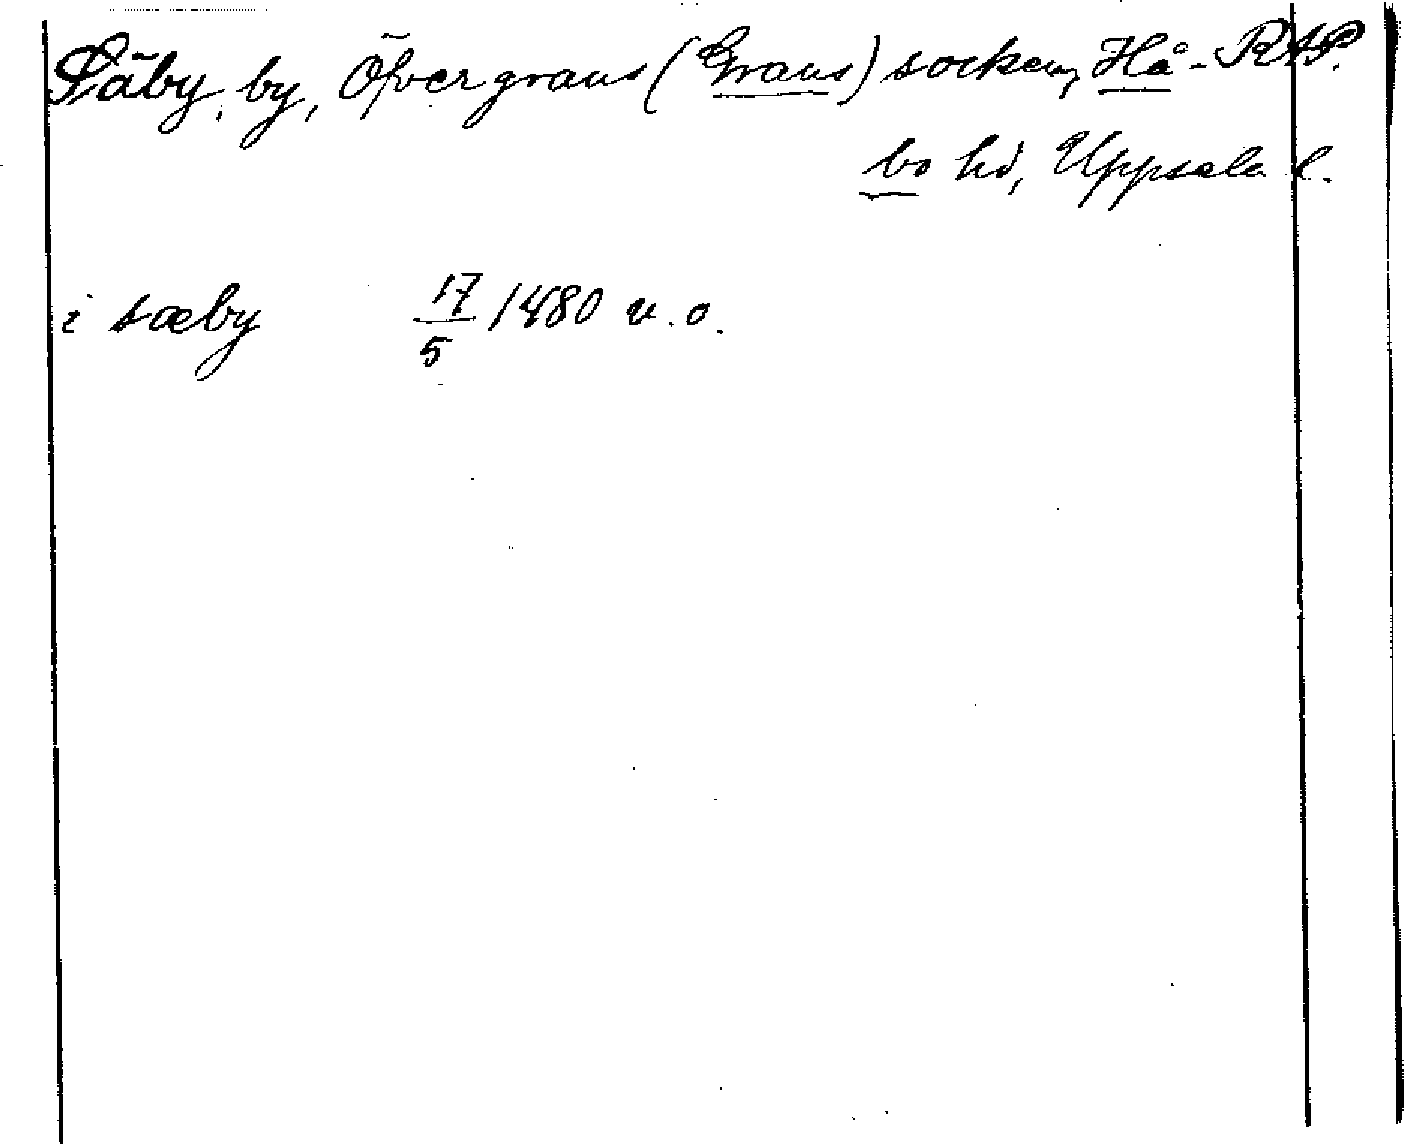 Säby, by, Öfvergrans (Grans) socken, Hå- RAP.
bo hd, Uppsala l.
i sæby 17/5 1480 u. o.